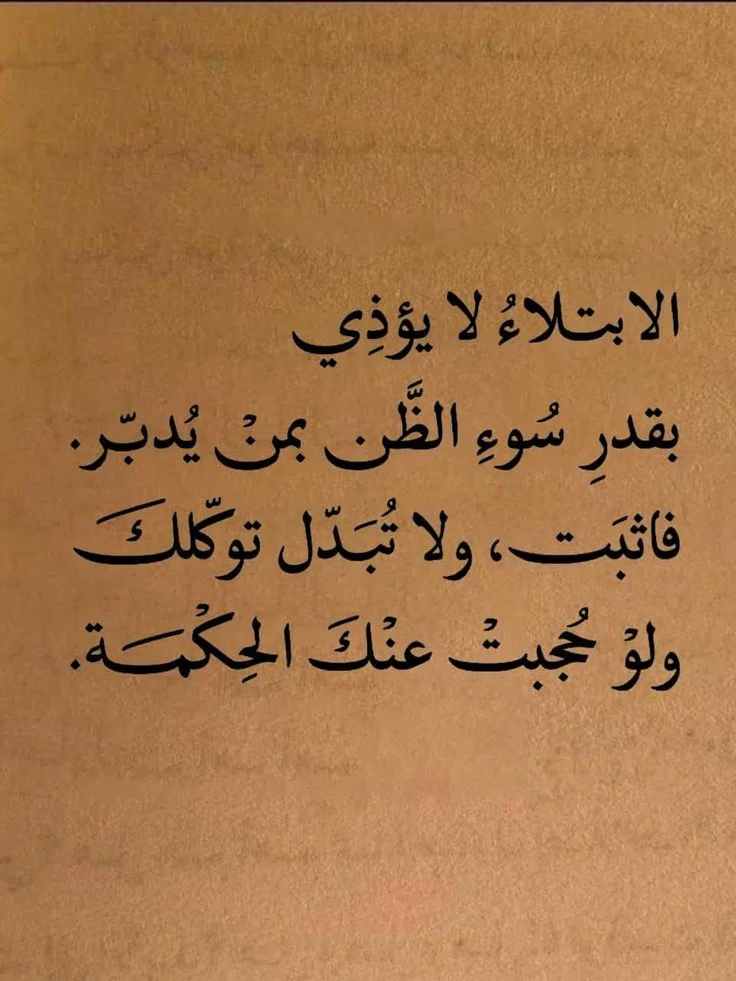 الابتلاءُ لا يؤذِي
بقدرِ سُوءِ الظَّن بمنْ يُدبّر.
فاثبَت، ولا تُبَدّل توكّلكَ
ولوْ حُجبتْ عنْكَ الحِكْمَة.